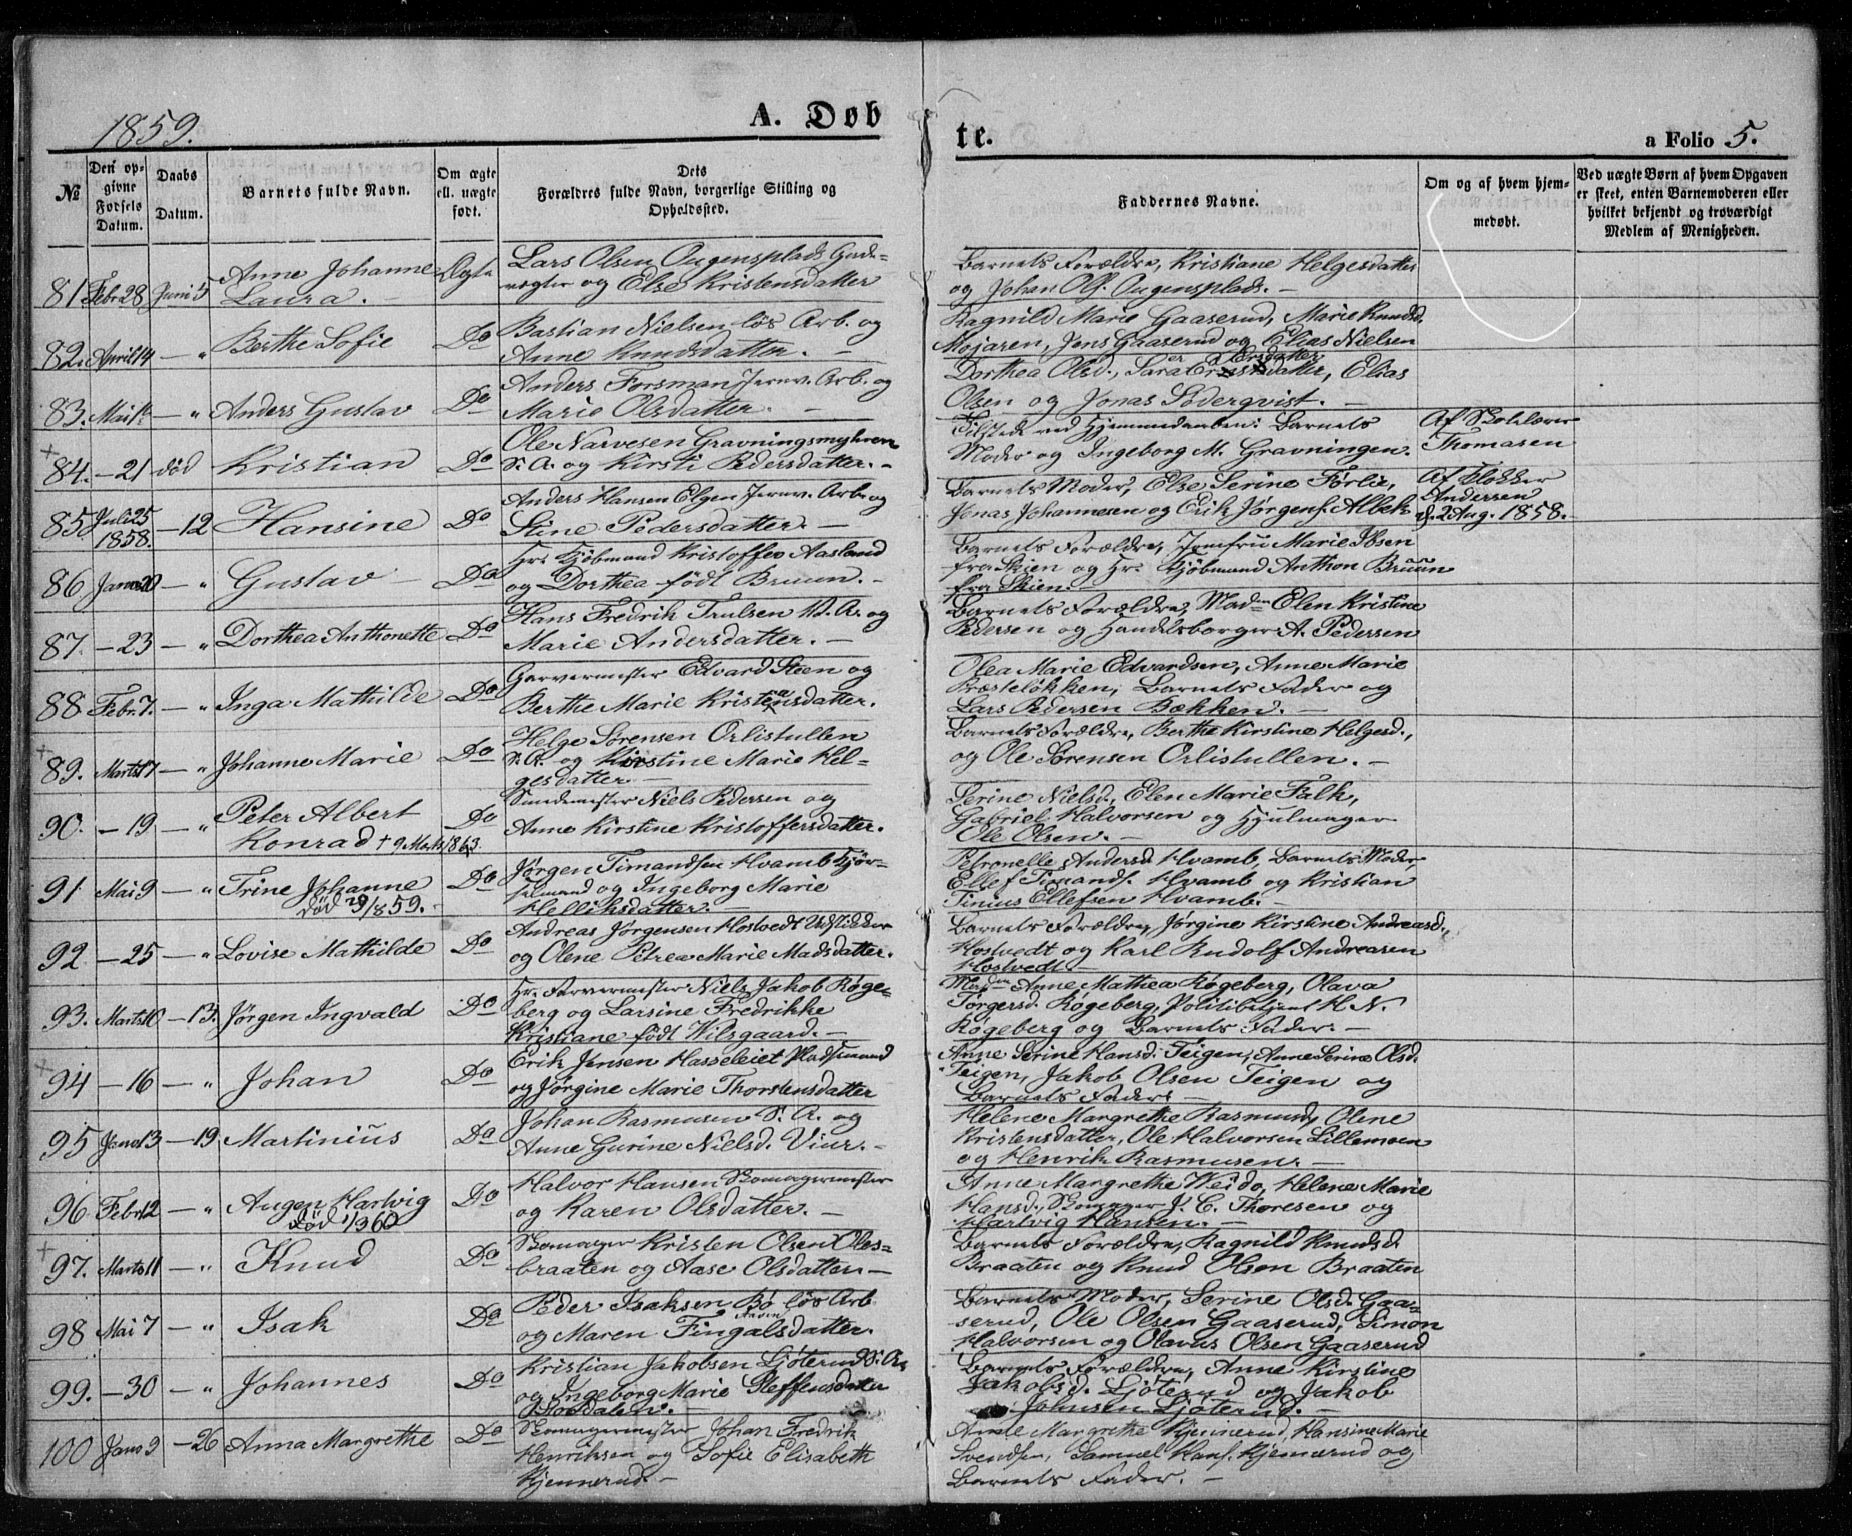 1859.
A. Døb
te.
a Folio 5.
№
Den op-
givne
Fødsels
Datum.
Daabs
Datum.
Barnets fulde Navn.
Om ægte
ell. uægte
født.
Dets
Forældres fulde Navn, borgerlige Stilling og
Opholdssted.
Faddernes Navne.
Om og af hvem hjem-
medøbt.
Ved uægte Børn af hvem Opgaven
er skeet, enten Barnemoderen eller
hvilket bekjendt og troværdigt
Medlem af Menigheden.
81. Febr. 28 Juni 5 Anne Johanne
Laura. —
Ægte
Lars Olsen Augensplads Gade-
vægter og Else Kristensdatter
Barnets Forældre, Kristiane Helgesdatter
og Johan Ols. Augensplads. —
82. April 14 — " Berthe Sofie Do
Bastian Nielsen løs Arb. og
Anne Knudsdatter. —
Ragnild Marie Gaaserud, Marie Knudsd.
Mojaren, Jens Gaaserud og Elias Nielsen
83. Mai — " Anders Gustav Do
Anders Forsman Jernv. Arb. og
Marie Olsdatter. —
Dorthea Olsd., Sara Ersdatter, Elias
Olsen og Jonas Søderqvist. —
+
84. — 21 død Kristian Do
Ole Narvesen Gravningsmyhren
S. A. og Kirsti Pedersdatter. —
Tilstede ved Hjemmedaaben: Barnets
Moder og Ingeborg M. Gravningen.
Af Skolelærer
Thomasen
85. Juli 25
1858. — 12 Hansine Do
Anders Hansen Elgen Jernv. Arb. og
Stine Pedersdatter. —
Barnets Moder, Else Serine Førlie,
Jonas Johannesen og Erik Jørgens. Albek
Af Klokker
Andersen
d. 2 Aug. 1858.
86 Janu. 20 — " Gustav — Do
Hr. Kjøbmand Kristoffer Aasland
og Dorthea født Bruun. —
Barnets Forældre, Jomfru Marie Ibsen
fra Skien og Hr. Kjøbmand Anthon Bruun
fra Skien. —
87. — 23 — " Dorthea Anthonette Do
Hans Fredrik Trulsen V. A. og
Marie Andersdatter. —
Barnets Forældre, Madm Elen Kristine
Pedersen og Handelsborger A. Pedersen
88 Febr. 7. — " Inga Mathilde Do
Garvermester Edvard Steen og
Berthe Marie Kristensdatter.
Olea Marie Edvardsen, Anne Marie
Præsteløkken, Barnets Fader og
Lars Pedersen Bækken. —
+
89. Marts 17 — " Johanne Marie Do
Helge Sørensen Orlistullen
S. A. og Kirstine Marie Hel-
gesdatter —
Barnets Forældre, Berthe Kirstine Helgesd.,
og Ole Sørensen Orlistullen. —
90. — 19 — " Peter Albert
Konrad † 9 Marts 1863.
Do
Smedemester Niels Pedersen og
Anne Kirstine Kristoffersdatter.
Serine Nielsd., Elen Marie Falk,
Gabriel Halvorsen og Hjulmager
Ole Olsen. —
91 Mai 9 — " Trine Johanne
død /859.
Do
Jørgen Timandsen Hvamb Kjør-
selmand og Ingeborg Marie
Helliksdatter. —
Petronelle Andersd. Hvamb, Barnets Moder,
Ellef Timands. Hvamb og Kristian
Tinius Ellefsen Hvamb. —
92 — 25 — " Lovise Mathilde Do
Andreas Jørgensen Hostvedt Udstikker
og Olene Petrea Marie Madsdatter.
Barnets Forældre, Jørgine Kirstine Andreasd.,
Hostvedt og Karl Rudolf Andreasen
Hostvedt. —
93. Marts 10 — 13. Jørgen Ingvald Do
Hr. Farvermester Niels Jakob Røge-
berg og Larsine Fredrikke
Kristiane født Wilsgaard. —
Madm Anne Mathea Røgeberg, Olava
Torgersd. Røgeberg, Politibetjent H. N.
Røgeberg og Barnets Fader. —
+
94 — 16 — " Johan Do
Erik Jensen Hasseleiet Pladsmand
og Jørgine Marie Thorstensdatter
Anne Serine Hansd. Teigen, Anne Serine Olsd.
Teigen, Jakob Olsen Teigen og
Barnets Fader —
95 Janu 13 — 19 Martinius Do
Johan Rasmusen S. A. og
Anne Gurine Nielsd. Viur. —
Helene Margrethe Rasmusd., Olene
Kristensdatter, Ole Halvorsen Lillemoen
og Henrik Rasmusen. —
96 Febr. 12 — " Augen Hartvig
død 1/3 60
Do
Halvor Hansen Skomagermester
og Karen Olsdatter. —
Anne Margrethe Weido, Helene Marie
Hansd., Skomager J. C. Thoresen og
Hartvig Hansen. —
+
97. Marts 11 — " Knud Do
Skomager Kristen Olsen Oles-
braaten og Aase Olsdatter. —
Barnets Forældre, Ragnild Knudsd.
Braaten og Knud Olsen Braaten
98 Mai 7 — " Isak Do
Peder Isaksen Bø løs Arb
og Maren Fingalsdatter.
Barnets Moder, Serine Olsd. Gaa-
serud, Ole Olsen Gaaserud, Simon
Halvorsen og Olavus Olsen Gaaserud
99. — 30 — " Johannes Do
Kristian Jakobsen Ljøterud S. A.
og Ingeborg Marie Steffensdatter
Stordalen. —
Barnets Forældre, Anne Kirstine
Jakobsd. Ljøterud og Jakob
Johnsen Ljøterud. —
100 Janu 9 — 26 Anna Margrethe Do
Skomagermester Johan Fredrik
Henriksen og Sofie Elisabeth
Kjennerud. —
Margrethe Kjennerud, Hansine Marie
Svendsen, Samuel Hans. Kjennerud og
Barnets Fader. —